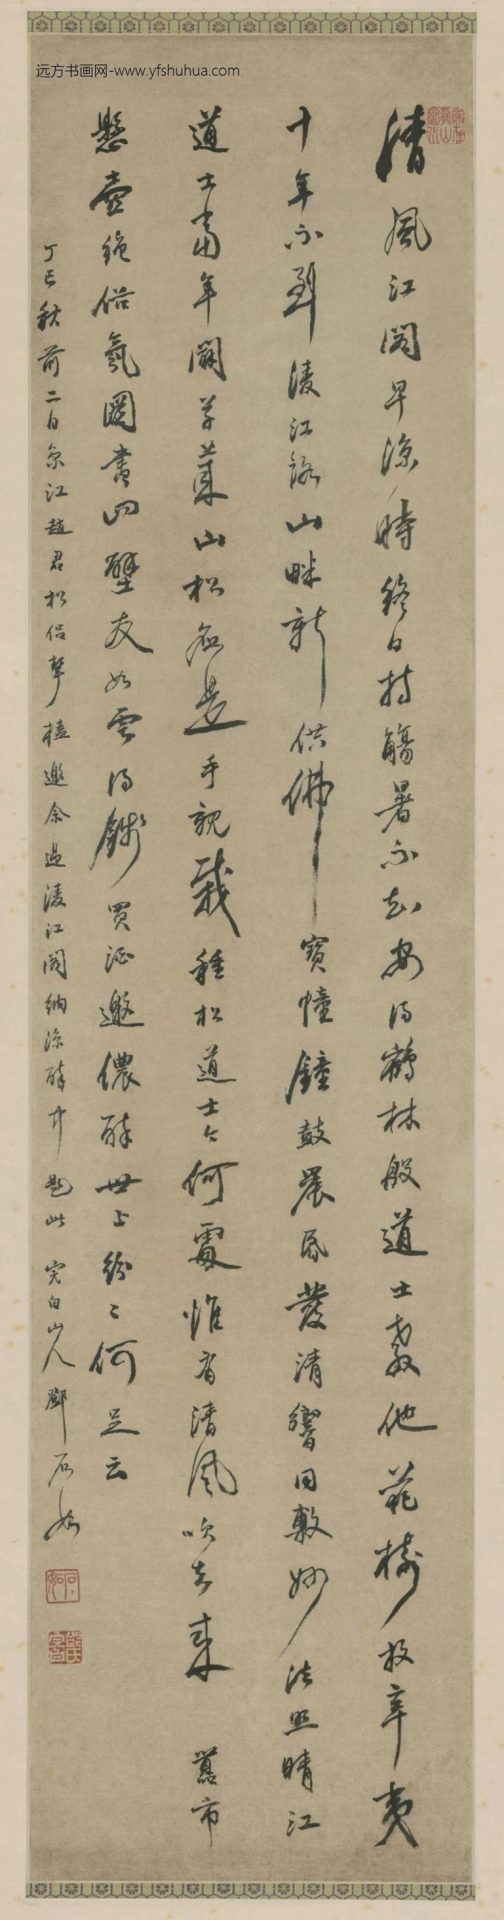 远方书画网-www.yfshuhua.com
清風江閣早涼時終日持觴暑不知安得鶴林殷道士教他花樹放辛夷
十年不到淩江路山畔新供佛寶幢鐘鼓晨昏發清響同敷妙法照晴江
道士當年闢草萊山松是手親栽種松道士今何處惟有清風吹去來 舊市
懸壺絕俗氛圖書四壁友如雲得錢買酒邀儂醉世上紛々何足云
丁巳秋前二日京江趙君松侶挈榼邀余過淩江閣納涼醉中題此 完白山人鄧石如